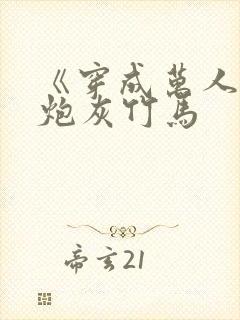 《穿成萬人
炮灰竹馬
帝玄21